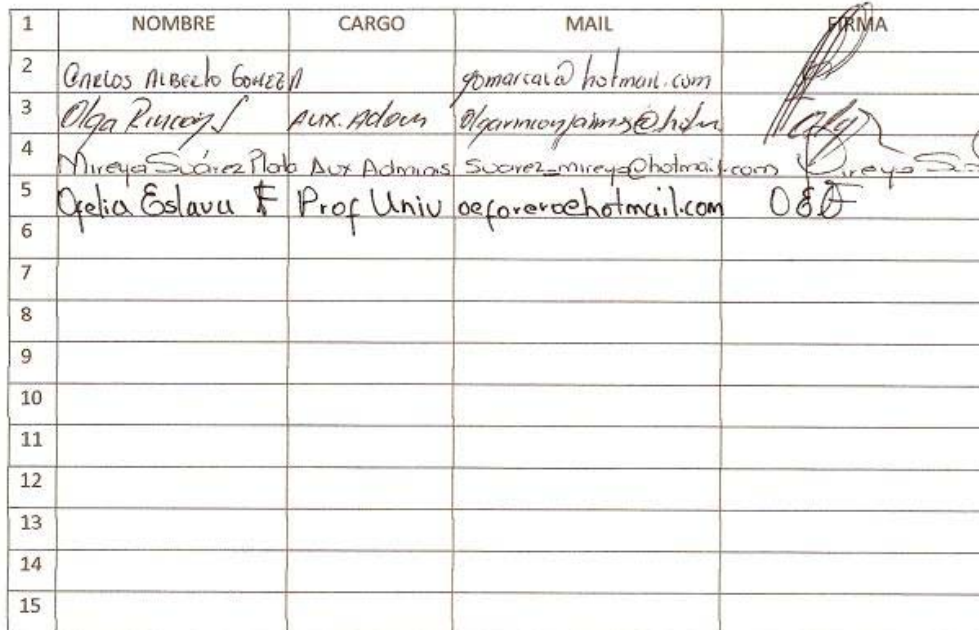 1 NOMBRE CARGO MAIL FIRMA
2 CARLOS ALBERTO GOMEZ A gomarcal@hotmail.com
3 Olga Rincon J Aux. Admon
4 Mireya Suárez Plata Aux Adminis Suarez_mireya@hotmail.com
5 Ofelia Eslava F Prof Univ oeforero@hotmail.com OEF
6
7
8
9
10
11
12
13
14
15